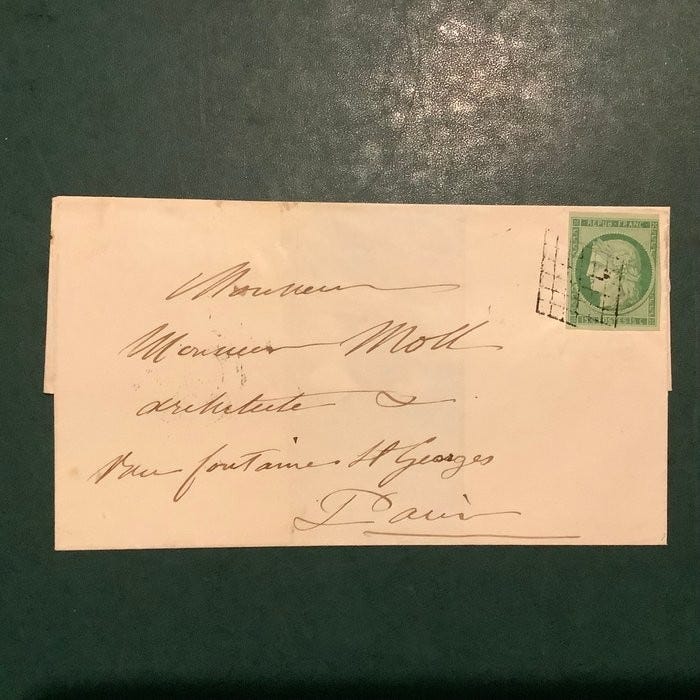 REPUB FRANC
15 C. POSTES 15 C.
Monsieur
Monsieur Moll
architecte
fontaine St Georges
Paris